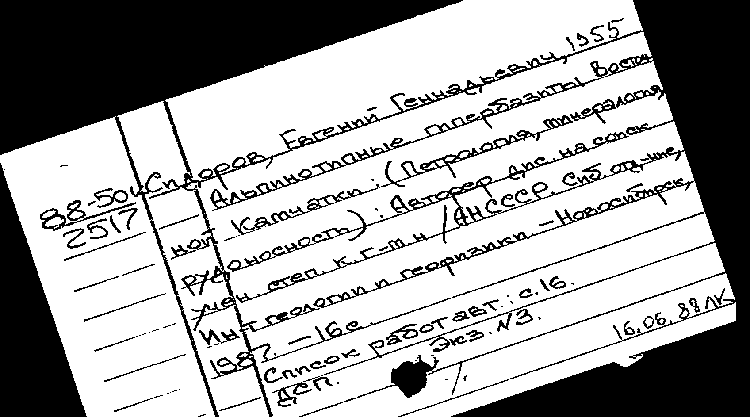 88-50к
2517
Сидоров, Евгений Геннадьевич, 1955
Альпинотипные гипербазиты Восточ
ной Камчатки: (Петрология, минералогия,
рудоносность): Автореф дис. на соиск
учен. степ. к. г-м н /АНСССР. Сиб. отд-ние,
Ин-т геологии и геофизики - Новосибирск,
1987. -16 с.
Список работ авт.: с.16.
ДСП. Экз. №3.
16.06.88 ЛК